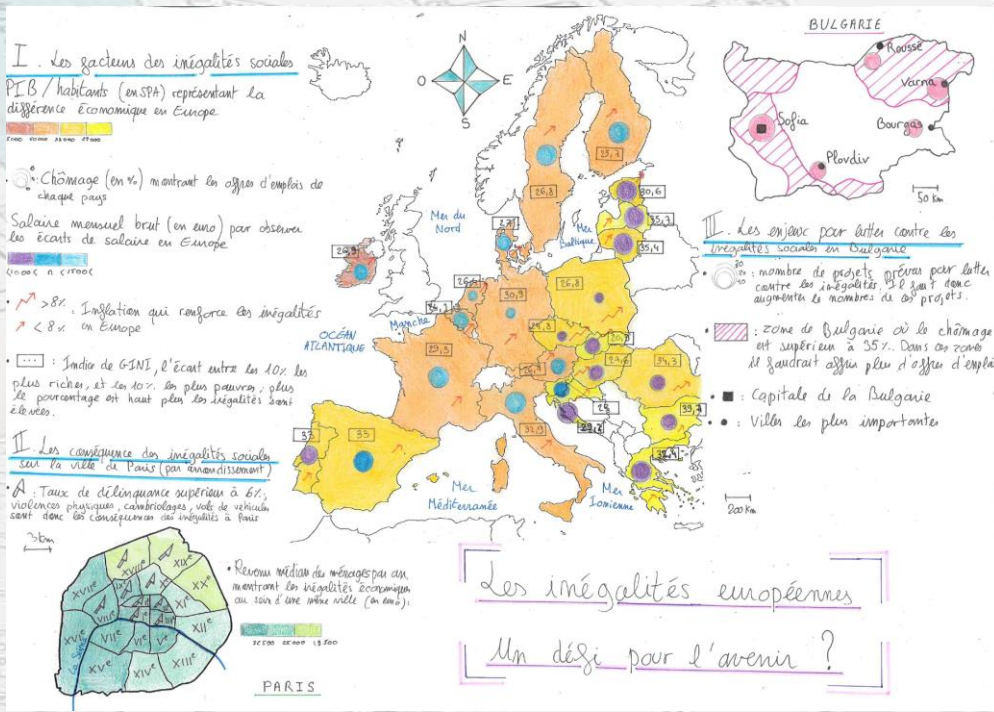 I. Les facteurs des inégalités sociales
PIB/habitants (en SPA) représentant la
différence économique en Europe
Chômage (en %) montrant les offres d'emplois de
chaque pays
Salaire mensuel brut (en euro) par observer
les écarts de salaire en Europe
>8% Inflation qui renforce les inégalités
<8% en Europe
: Indice de GINI, l'écart entre les 10% les
plus riches, et les 10% les plus pauvres, plus
le pourcentage est haut plus les inégalités sont
élevées.
II. Les conséquence des inégalités sociales
sur la ville de Paris (par arrondissement)
: Taux de délinquance supérieur à 6%,
violences physiques, cambriolages, vols de véhicules
sont donc les conséquences des inégalités à Paris
3 km
XVIIe
XVIIIe
XIXe
XXe
XIe
XIIe
XIIIe
XIVe
XVe
XVIe
VIIe
VIIIe
VIe
Ve
La Seine
PARIS
Revenu médian des ménages par an,
montrant les inégalités économiques
au sein d'une même ville (en euro):
N
O
E
S
Mer du
Nord
Mer
Baltique
Manche
OCÉAN
ATLANTIQUE
Mer
Méditerranée
Mer
Ionienne
26,8
30,6
35,4
26,8
30,9
29,3
34,3
33
32,9
200 km
BULGARIE
Rousse
Varna
Sofia
Bourgas
Plovdiv
50 km
III. Les enjeux pour lutter contre les
inégalités sociales en Bulgarie
: nombre de projets prévus pour lutter
contre les inégalités. Il faut donc
augmenter le nombres de ces projets.
: zone de Bulgarie où le chômage
est supérieur à 35%. Dans ces zones
il faudrait offrir plus d'offres d'emploi
: Capitale de la Bulgarie
: Villes les plus importantes
Les inégalités européennes
Un défi pour l'avenir ?